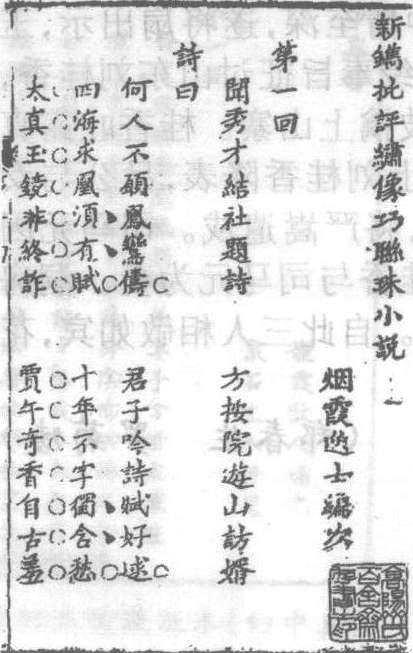 新鐫批評繡像巧聯珠小說 一
烟霞逸士編次
第一回
聞秀才結社題詩 方按院遊山訪婿
詩曰
何人不願鳳鸞儔 君子吟詩賦好逑
四海求凰須有賦 十年不字獨含愁
太真玉鏡非終詐 賈午奇香自古羞